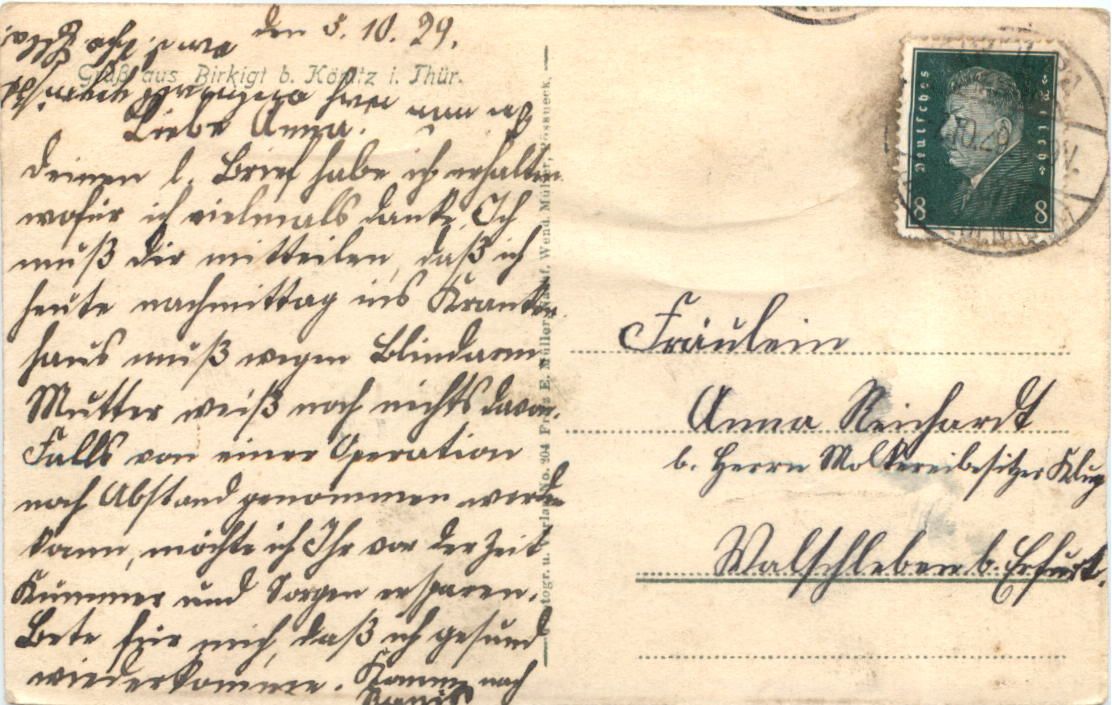 den 5. 10. 29.
Gruß aus Birkigt b. Könitz i. Thür.
Liebe Anna.
deinen l. Brief habe ich erhalten
wofür ich vielmals danke, Ich
muß dir mitteilen, daß ich
heute nachmittag ins Kranken
haus muß wegen Blindarm
Mutter weiß noch nichts davon.
Falls von einer Operation
noch Abstand genommen werden
kann, möchte ich Ihr vor der Zeit
Kummer und Sorgen ersparen.
Bete für mich, daß ich gesund
wiederkomme. Komme nach
Ranis
No. 204
E. Müller
Wend. Müller, Pössneck.
Deutsches Reich
8 8
Fräulein
Anna Reichardt
b. Herrn Molkereibesitzer Klug
Walschleben b. Erfurt.